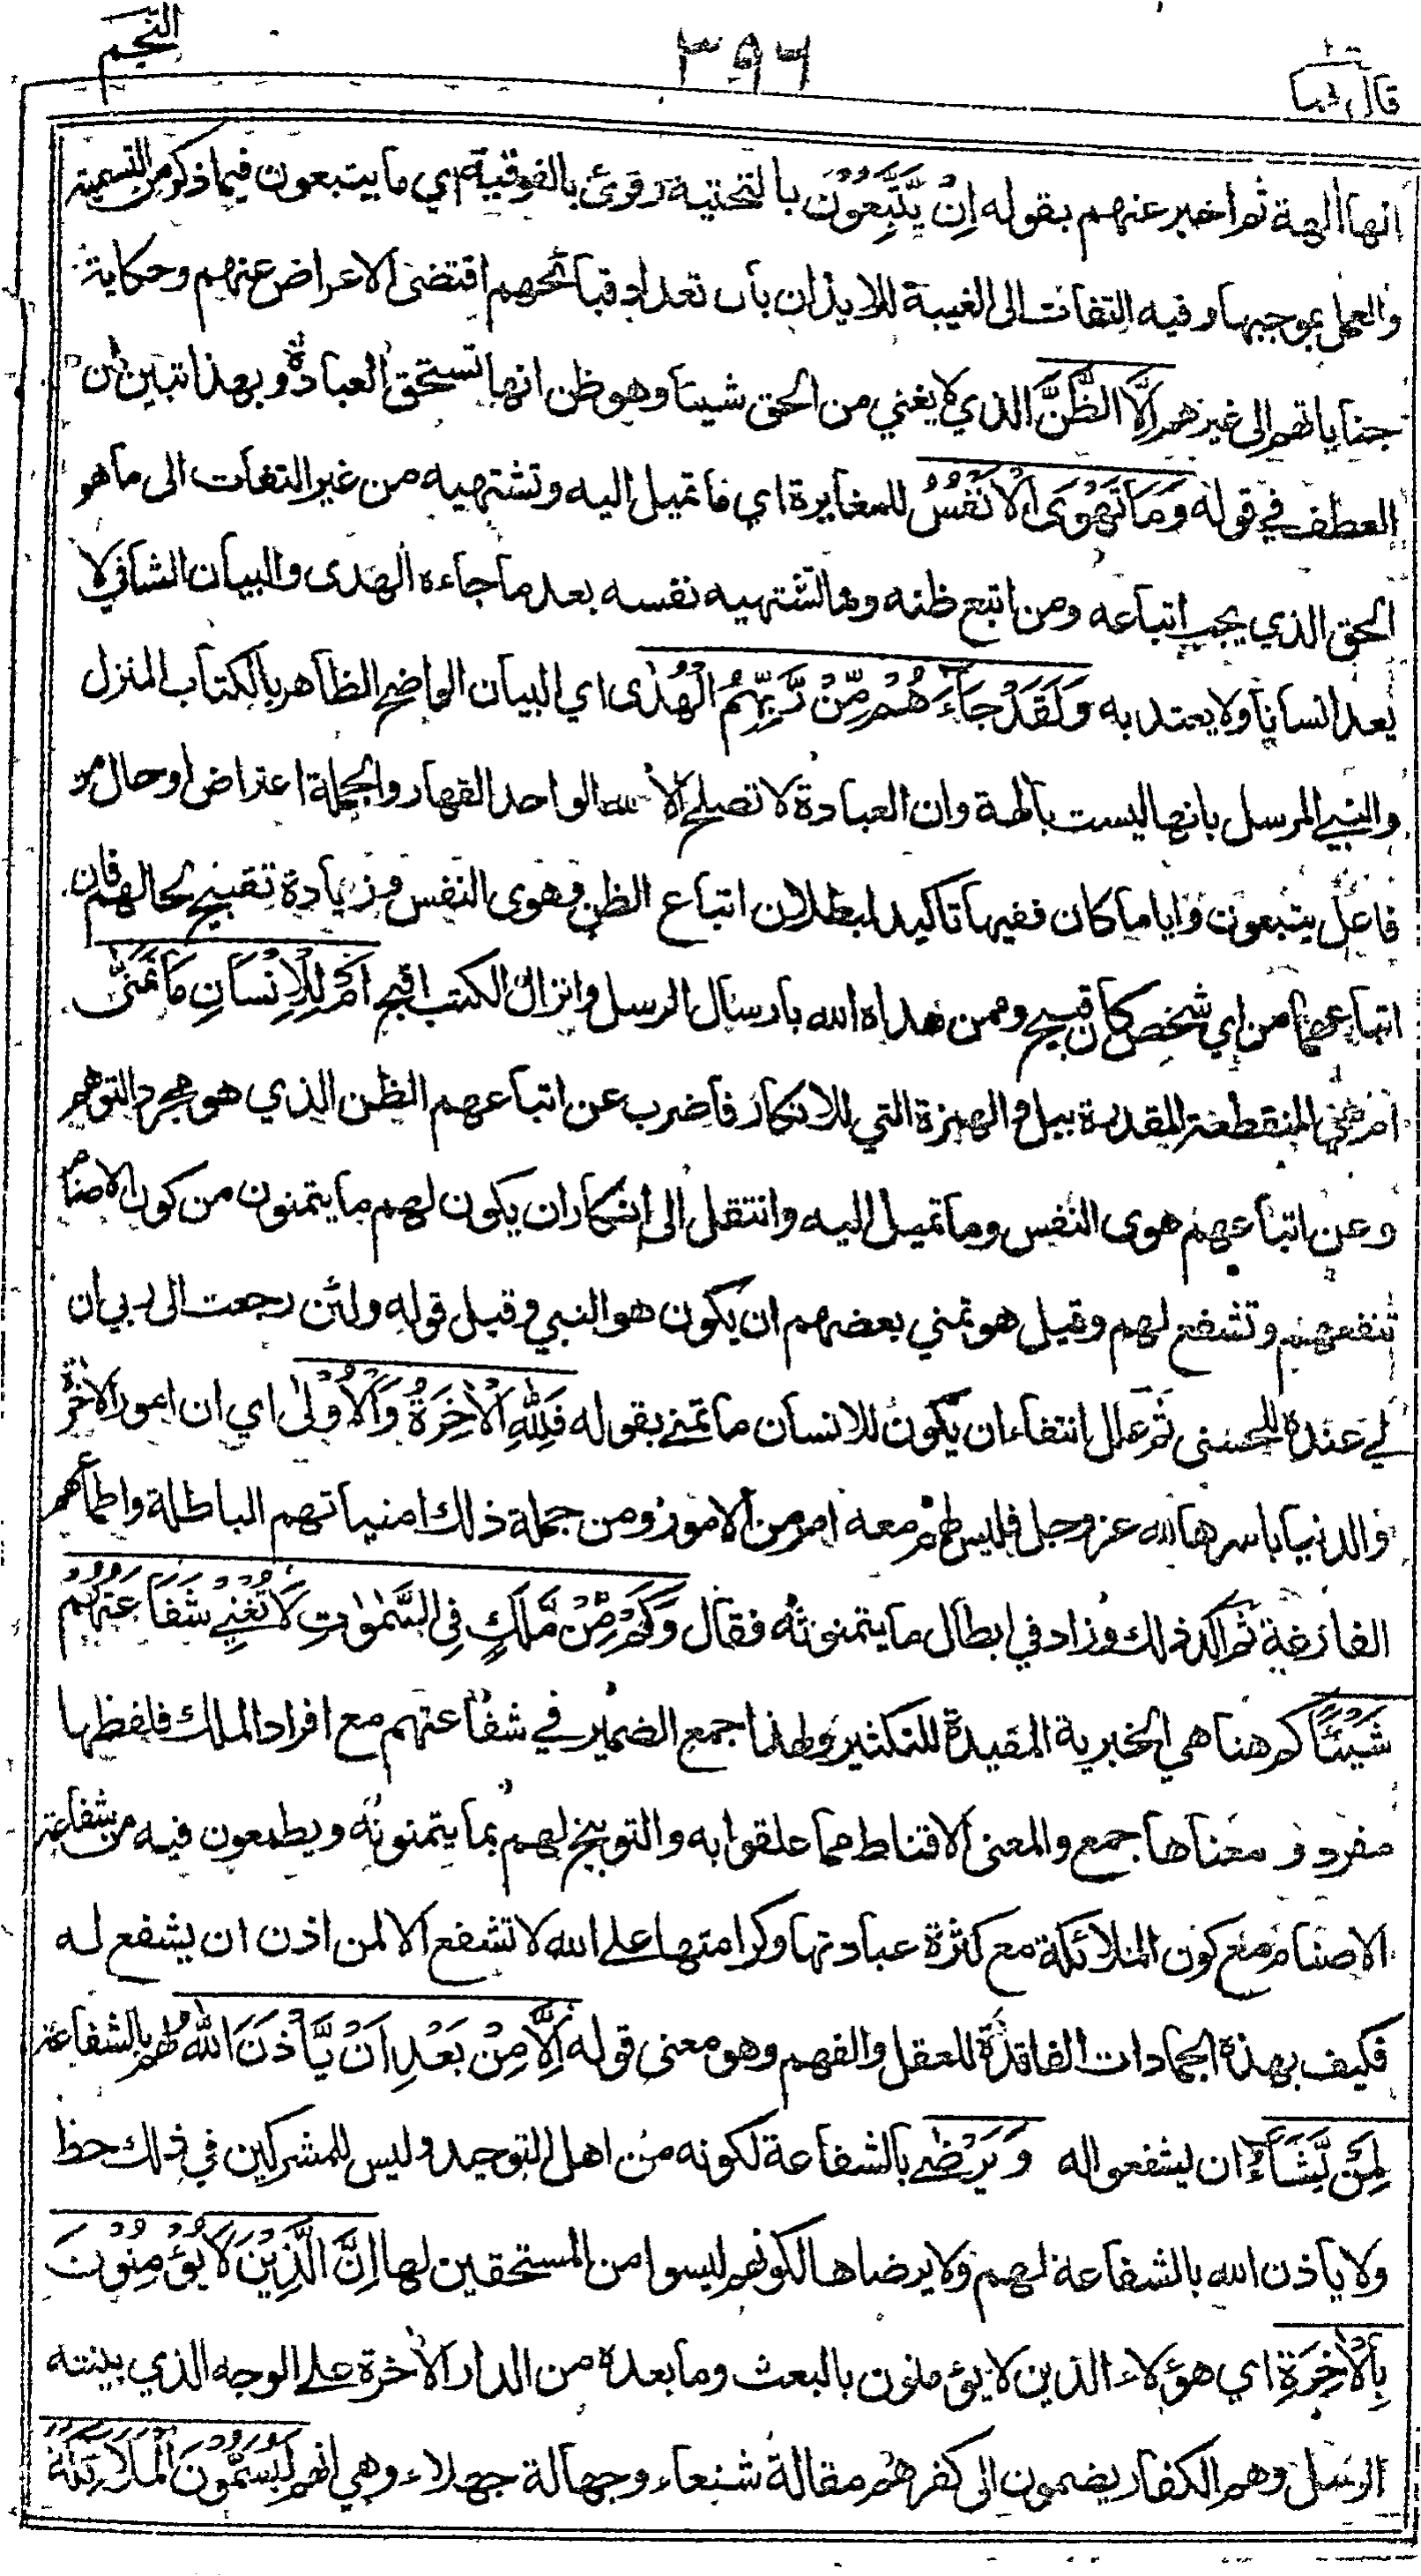 قال فما
٣٩٦
النجم
انها الهة ثم اخبر عنهم بقوله اِنْ يَّتَّبِعُوْنَ بالتحتية وقرئ بالفوقية اي ما يتبعون فيما ذكر من التسمية
والعمل بموجبها وفيه التفات الى الغيبة للايذان بأن تعداد قبائحهم اقتضى الاعراض عنهم وحكاية
جناياتهم الى غيرهم اِلَّا الظَّنَّ الذي لا يغني من الحق شيئا وهو ظن انها تستحق العبادة وبهذا تبين ان
العطف في قوله وَمَا تَهْوَى الْاَنْفُسُ للمغايرة اي ما تميل اليه وتشتهيه من غير التفات الى ما هو
الحق الذي يجب اتباعه ومن اتبع ظنه وما تشتهيه نفسه بعد ما جاءه الهدى والبيان الشافي لا
يعد انسانا ولا يعتد به وَلَقَدْ جَآءَهُمْ مِّنْ رَّبِّهِمُ الْهُدٰى اي البيان الواضح الظاهر بالكتاب المنزل
والنبي المرسل بانها ليست بآلهة وان العبادة لا تصلح الا لله الواحد القهار والجملة اعتراض او حال من
فاعل يتبعون وايا ما كان ففيها تاكيد لبطلان اتباع الظن وهوى النفس وزيادة تقبيح لحالهم فان
اتباعهما من اي شخص كان قبيح وممن هداه الله بارسال الرسل وانزال الكتب اقبح اَمْ لِلْاِنْسَانِ مَا تَمَنّٰى
ام هي المنقطعة المقدرة ببل والهمزة التي للانكار فاضرب عن اتباعهم الظن الذي هو مجرد التوهم
وعن اتباعهم هوى النفس وما تميل اليه وانتقل الى انكار ان يكون لهم ما يتمنون من كون الاصنام
تنفعهم وتشفع لهم وقيل هو تمني بعضهم ان يكون هو النبي وقيل قوله ولئن رجعت الى ربي ان
لي عنده للحسنى ثم علل انتفاء ان يكون للانسان ما تمنى بقوله فَلِلّٰهِ الْاٰخِرَةُ وَالْاُوْلٰى اي ان امور الاخرة
والدنيا باسرها لله عز وجل فليس لهم معه امر من الامور ومن جملة ذلك امنياتهم الباطلة واطماعهم
الفارغة ثم اكد ذلك وزاد في ابطال ما يتمنونه فقال وَكَمْ مِّنْ مَّلَكٍ فِي السَّمٰوٰتِ لَا تُغْنِيْ شَفَاعَتُهُمْ
شَيْئًا كم هنا هي الخبرية المفيدة للتكثير ولهذا جمع الضمير في شفاعتهم مع افراد الملك فلفظها
مفرد و معناها جمع والمعنى الاقناط مما علقوا به والتوبيخ لهم بما يتمنونه ويطمعون فيه من شفاعة
الاصنام مع كون الملائكة مع كثرة عبادتها وكرامتها على الله لا تشفع الا لمن اذن ان يشفع له
فكيف بهذه الجمادات الفاقدة للعقل والفهم وهو معنى قوله اِلَّا مِنْ بَعْدِ اَنْ يَّاْذَنَ اللّٰهُ لهم بالشفاعة
لِمَنْ يَّشَآءُ ان يشفعوا له وَيَرْضٰى بالشفاعة لكونه من اهل التوحيد وليس للمشركين في ذلك حظ
ولا يأذن الله بالشفاعة لهم ولا يرضاها لكونهم ليسوا من المستحقين لها اِنَّ الَّذِيْنَ لَا يُؤْمِنُوْنَ
بِالْاٰخِرَةِ اي هؤلاء الذين لا يؤمنون بالبعث وما بعده من الدار الاخرة على الوجه الذي بينته
الرسل وهم الكفار يضمون الى كفرهم مقالة شنعاء وجهالة جهلاء وهي انهم لَيُسَمُّوْنَ الْمَلٰٓئِكَةَ